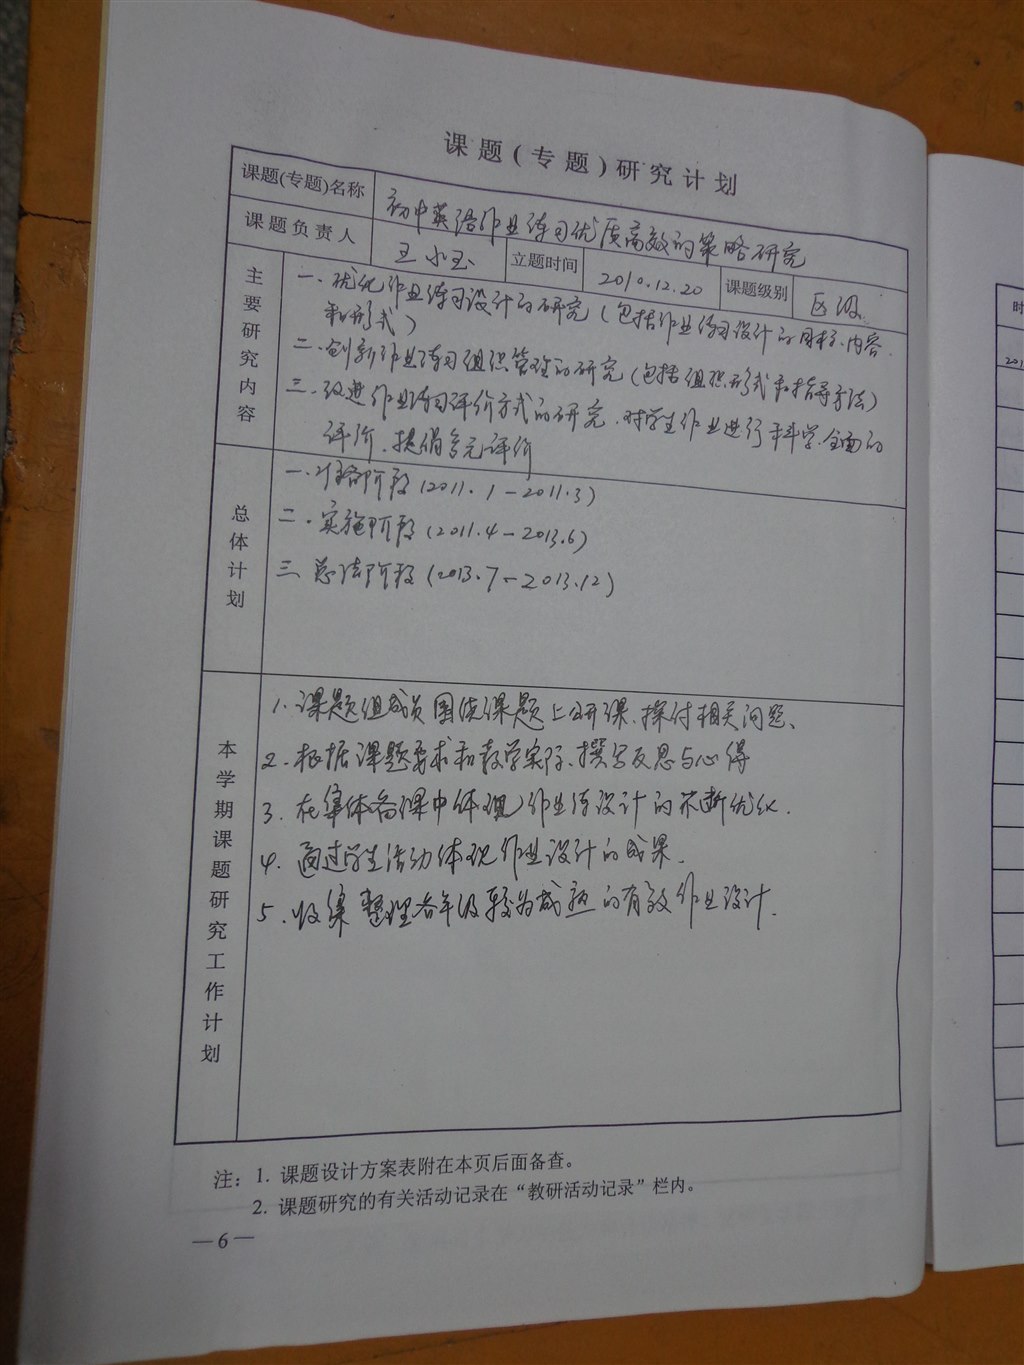 课题(专题)研究计划
课题(专题)名称 初中英语作业练习优质高效的策略研究
课题负责人 王小玉 立题时间 2010.12.20 课题级别 区级.
主要研究内容
一.优化作业练习设计的研究(包括作业练习设计的目标、内容
和形式)
二.创新作业练习组织管理的研究(包括组织形式和指导方法)
三.改进作业练习评价方式的研究.对学生作业进行科学.全面的
评价.提倡多元评价
总体计划
一.准备阶段(2011.1-2011.3)
二.实施阶段(2011.4-2013.6)
三.总结阶段(2013.7-2013.12)
本学期课题研究工作计划
1.课题组成员围绕课题上公开课、探讨相关问题、
2.根据课题要求和教学实际、撰写反思与心得
3.在集体备课中体现作业练设计的不断优化.
4.通过学生活动体现作业设计的成果.
5.收集整理各年级较为成熟的有效作业设计.
注：1. 课题设计方案表附在本页后面备查。
2. 课题研究的有关活动记录在“教研活动记录”栏内。
—6—
时
201